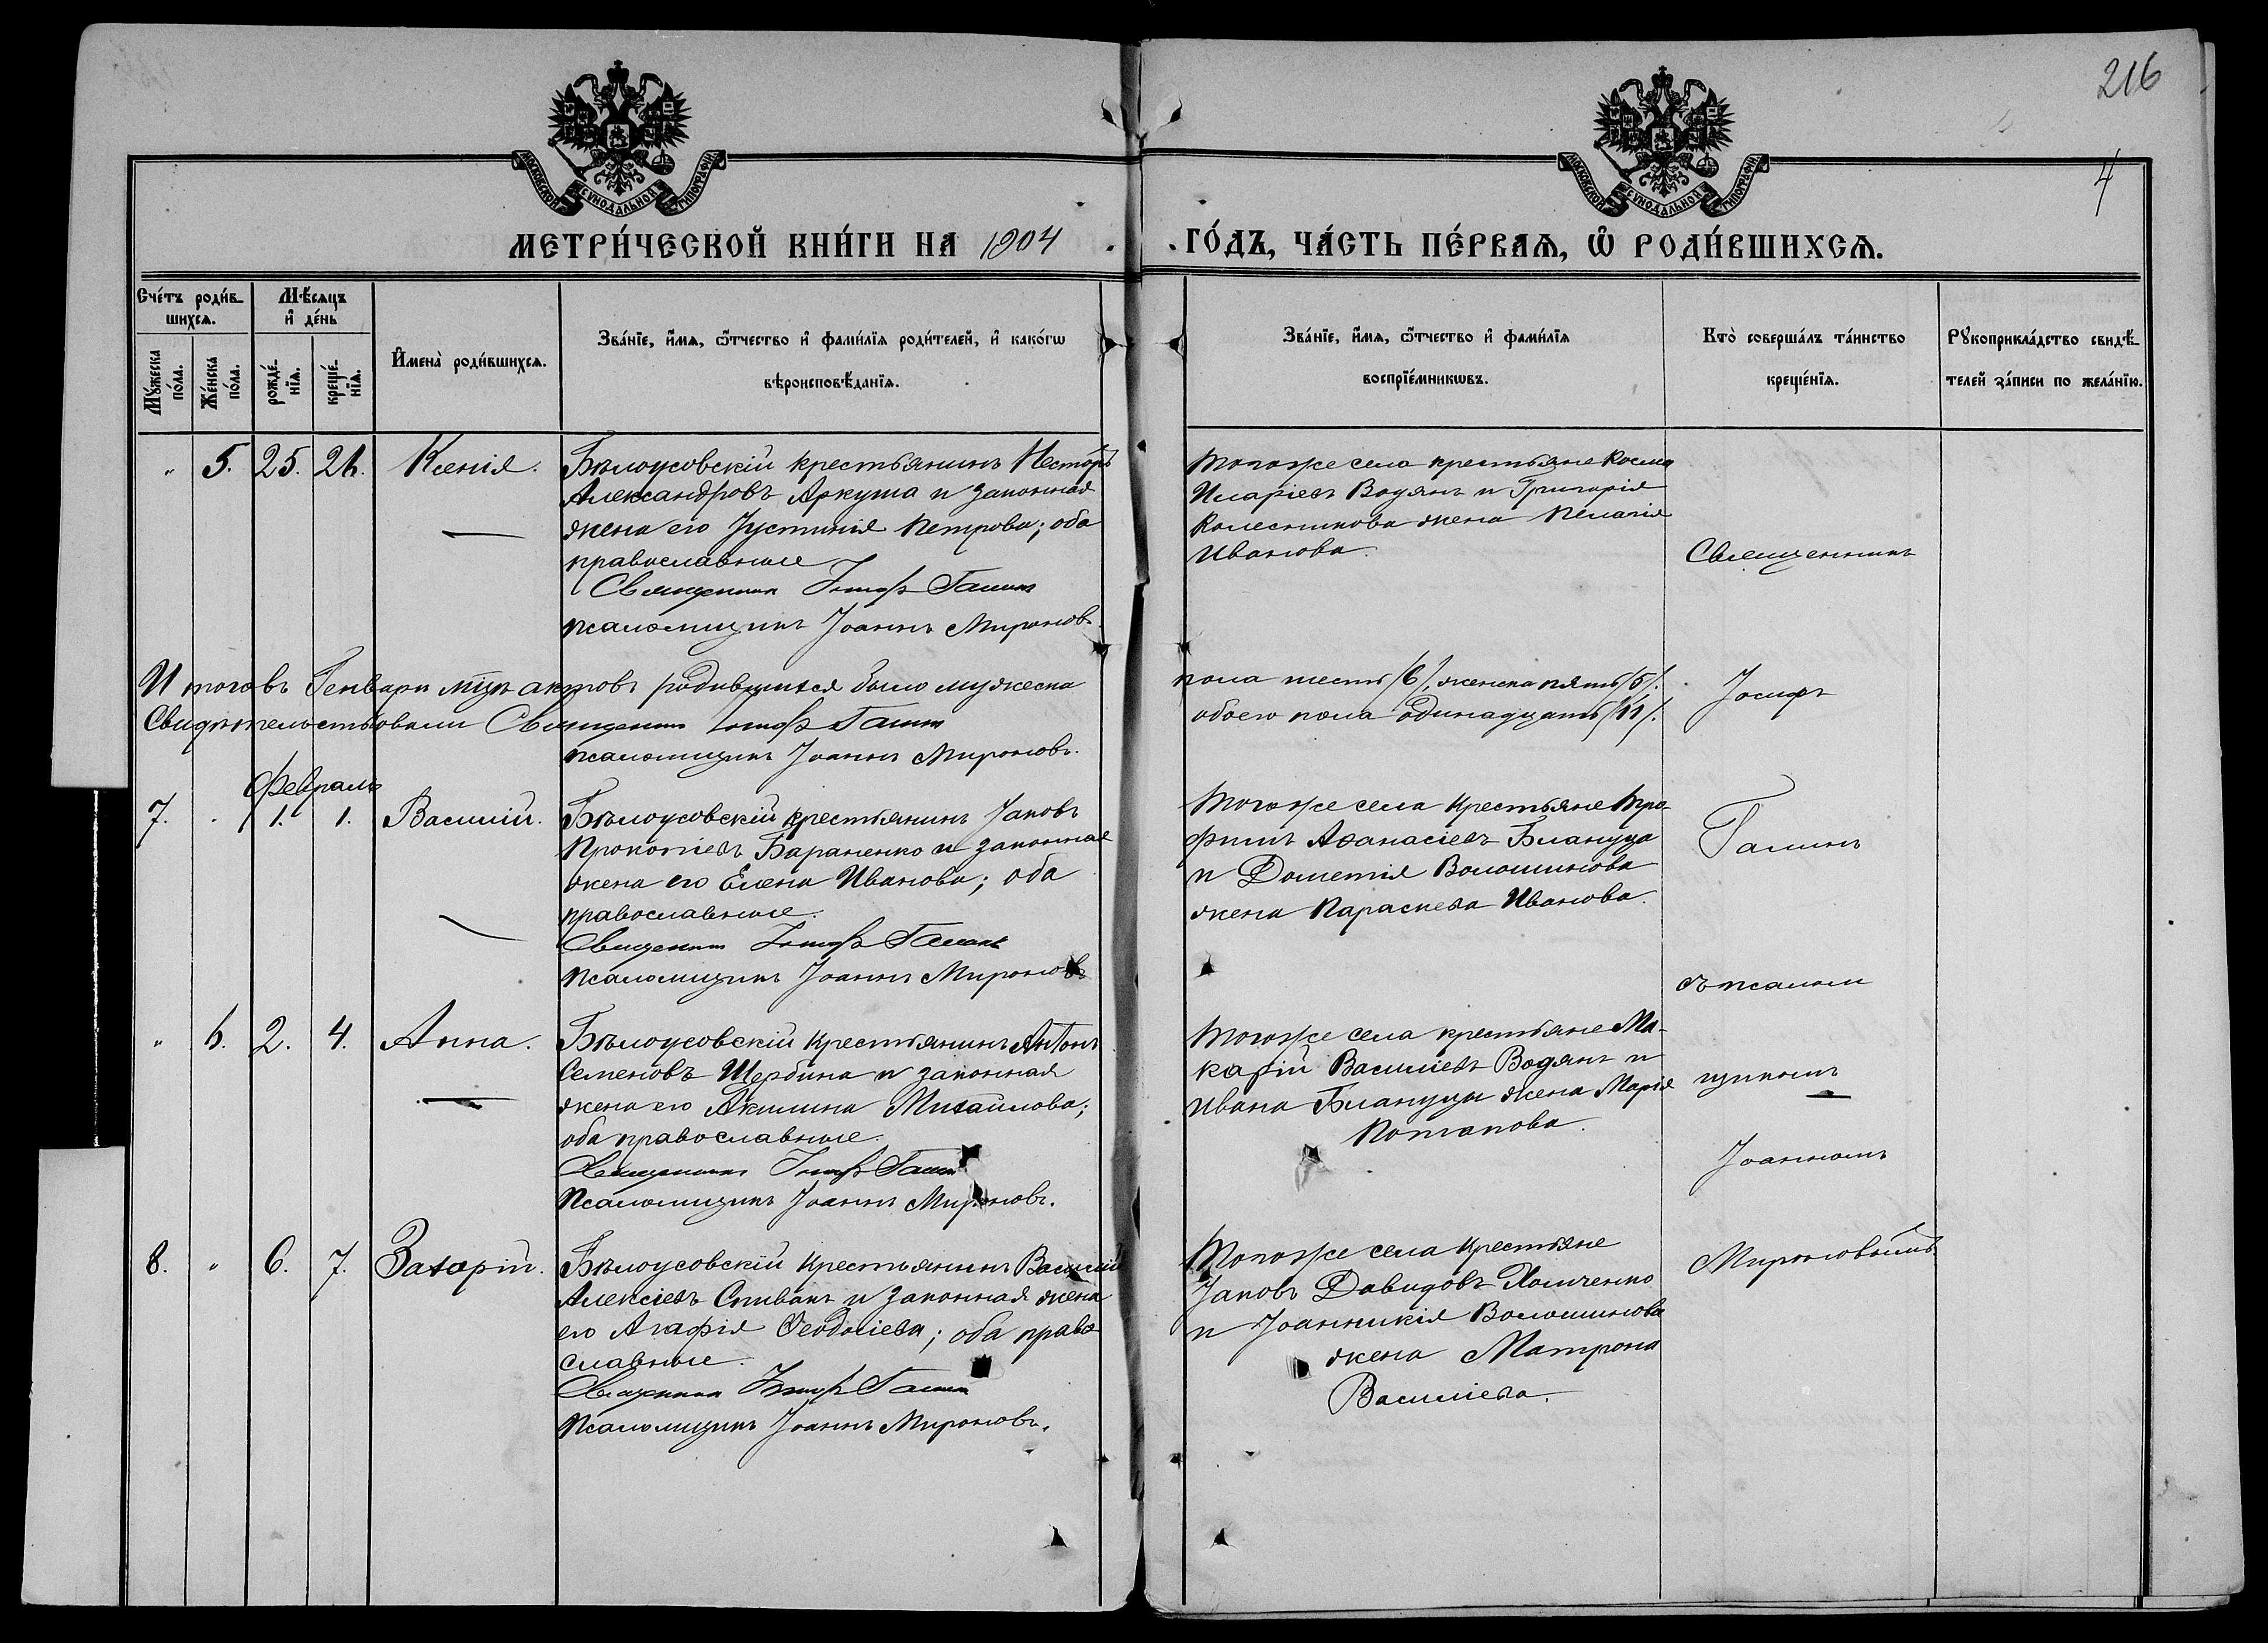 216
4
МОСКОВСКОЙ СѴНОДАЛЬНОЙ ТИПОГРАФІИ
МОСКОВСКОЙ СѴНОДАЛЬНОЙ ТИПОГРАФІИ
МЕТРИ́ЧЕСКОЙ КНИ́ГИ НА 1904
ГО́ДЪ, ЧА́СТЬ ПЕ́РВАѦ, Ѡ҆ РОДИ́ВШИХСѦ.
Сче́тъ роди́в-
шихсѧ.
Мꙋ́жеска
по́ла.
Же́нска
по́ла.
Мѣ́сѧцъ
и҆ де́нь
рожде́-
нїѧ.
креще́-
нїѧ.
И҆мена̀ роди́вшихсѧ.
Зва́нїе, и҆́мѧ, ѻ҆́тчество и҆ фами́лїѧ роди́телей, и҆ како́гѡ
вѣроисповѣ́данїѧ.
Зва́нїе, и҆́мѧ, ѻ҆́тчество и҆ фами́лїѧ
воспрїе́мникѡвъ.
Кто̀ соверша́лъ та́инство
креще́нїѧ.
Рꙋкоприкла́дство свидѣ́-
телей за́писи по жела́нїю.
" 5. 25. 26. Ксенія.
Бѣлоусовскій крестьянинъ Несторъ
Александровъ Аркуша и законная
жена его Іустинія Петрова; оба
православные
Священникъ Іосифъ Галинъ
псаломщикъ Іоаннъ Мироновъ.
Тогоже села крестьяне Косма
Иларіевъ Водянъ и Григорія
Колесникова жена Пелагія
Иванова.
Итого въ Генварѣ мцѣ актовъ родившихся было мужеска
пола шесть /6/, женска пять /5/.
Свидѣтельствовали Священникъ Іосифъ Галинъ
обоего пола одинадцать /11/.
псаломщикъ Іоаннъ Мироновъ.
Февраль
7. " 1. 1. Василій.
Бѣлоусовскій крестьянинъ Іаковъ
Прокопіевъ Бараненко и законная
жена его Елена Иванова; оба
православные.
Священникъ Іосифъ Галинъ
Псаломщикъ Іоаннъ Мироновъ
Тогоже села крестьяне Тро-
фимъ Аѳанасіевъ Блануца
и Дометія Волошинова
жена Параскева Иванова.
" 6. 2. 4. Анна.
Бѣлоусовскій крестьянинъ Антонъ
Семеновъ Щербина и законная
жена его Акилина Михайлова;
оба православные.
Священникъ Іосифъ Галинъ
Псаломщикъ Іоаннъ Мироновъ.
Тогоже села крестьяне Ма-
карій Василіевъ Водянъ и
Ивана Блануцы жена Марія
Потапова.
8. " 6. 7. Захарій.
Бѣлоусовскій крестьянинъ Василій
Алексіевъ Спивакъ и законная жена
его Агафія Ѳеодосіева; оба право-
славные.
Священникъ Іосифъ Галинъ
Псаломщикъ Іоаннъ Мироновъ.
Тогоже села крестьяне
Іаковъ Давидовъ Хомченко
и Іоанникія Волошинова
жена Матрона
Василіева.
Священникъ
Іосифъ
Галинъ
съ псалом
щикомъ
Іоанномъ
Мироновымъ